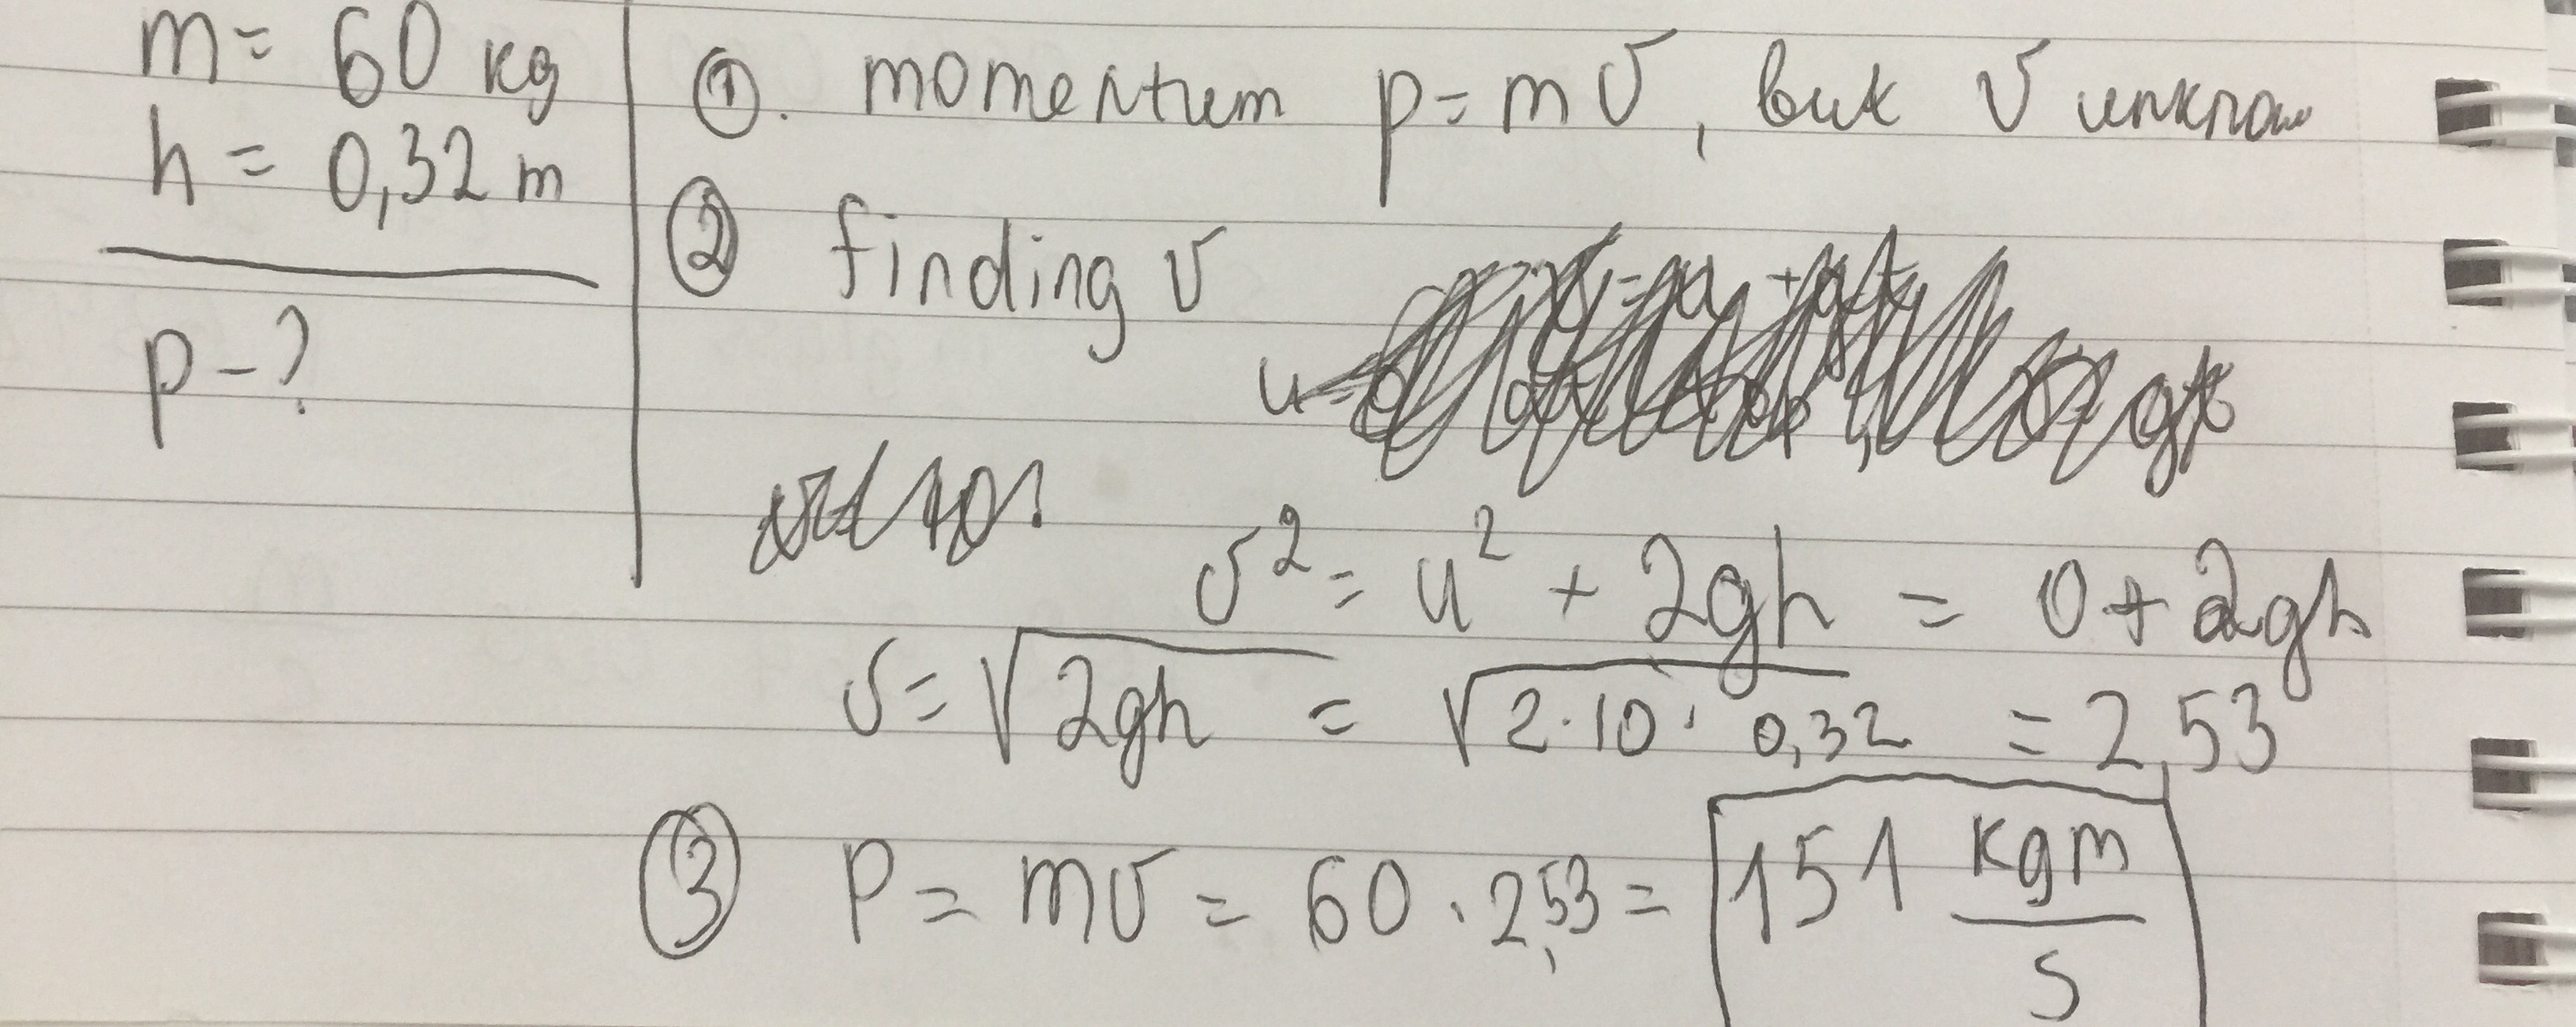 m = 60 kg
h = 0,32 m
p - ?
①. momentum p = mv, but v unknow
② finding v
v² = u² + 2gh = 0 + 2gh
v = √2gh = √2·10·0,32 = 2,53
③ P = mv = 60 · 2,53 = 151 kgm/s